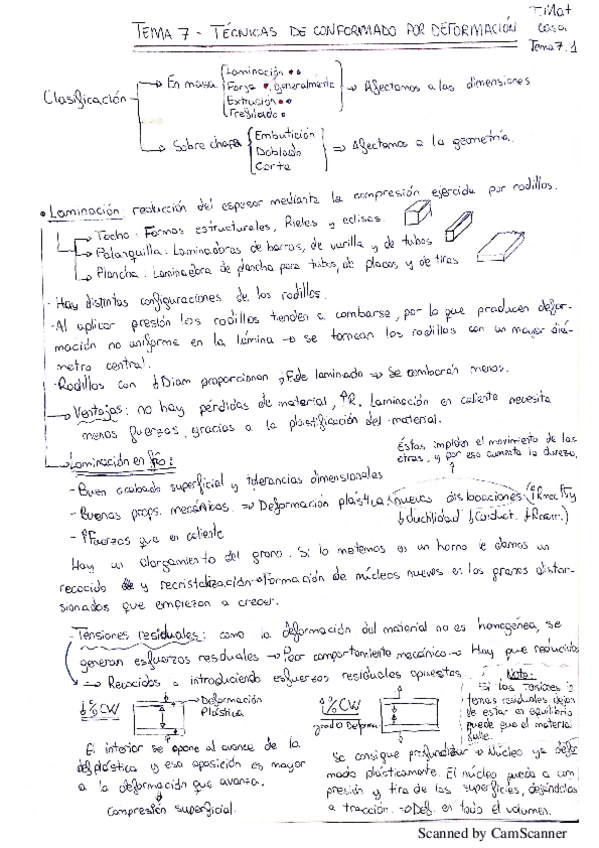 TEMA 7 - TÉCNICAS DE CONFORMADO POR DEFORMACIÓN
T.Mat
casa
Tema 7.1
Clasificación
En masa
Laminación
Forja generalmente
Extrusión
Trefilado
⇒ Afectamos a las dimensiones
Sobre chapa
Embutición
Doblado
Corte
⇒ Afectamos a la geometría.
• Laminación: reducción del espesor mediante la compresión ejercida por rodillos.
→ Tocho: Formas estructurales, Rieles y eclises.
→ Palanquilla: Laminadoras de barras, de varilla y de tubos
→ Plancha: Laminadora de plancha para tubos, de placas y de tiras
- Hay distintas configuraciones de los rodillos.
- Al aplicar presión los rodillos tienden a combarse, por lo que producen defor-
mación no uniforme en la lámina → se tornean los rodillos con un mayor diá-
metro central.
- Rodillos con ↓Diam proporcionan ↓F de laminado → Se combarán menos.
→ Ventajas: no hay pérdidas de material, ↑R. Laminación en caliente necesita
menos fuerzas, gracias a la plastificación del material.
→ Laminación en frío:
Éstas impiden el movimiento de las
otras, y por eso aumenta la dureza,
?
- Buen acabado superficial y tolerancias dimensionales
- Buenas props. mecánicas. → Deformación plástica: nuevas dislocaciones
↓Ductilidad ↓Conduct.
- ↑Fuerzas que en caliente
Hay un alargamiento del grano. Si lo metemos en un horno le damos un
recocido y recristalización → formación de núcleos nuevos en los granos distor-
sionados que empiezan a crecer.
- Tensiones residuales: como la deformación del material no es homogénea, se
generan esfuerzos residuales → Peor comportamiento mecánico → Hay que reducirlos
→ Recocidos o introduciendo esfuerzos residuales opuestos.
Nota:
Si las tensiones in
ternas residuales dejan
de estar en equilibrio
puede que el material
↓%CW
→ Deformación
Plástica
↑%CW
grado Deforma
El interior se opone al avance de la
def plástica y esa oposición es mayor
a la deformación que avanza.
Compresión superficial.
Se consigue profundizar → Núcleo ya defor
mado plásticamente. El núcleo queda a com
presión y tira de las superficies, dejándolas
a tracción. → Def. en todo el volumen.
Scanned by CamScanner